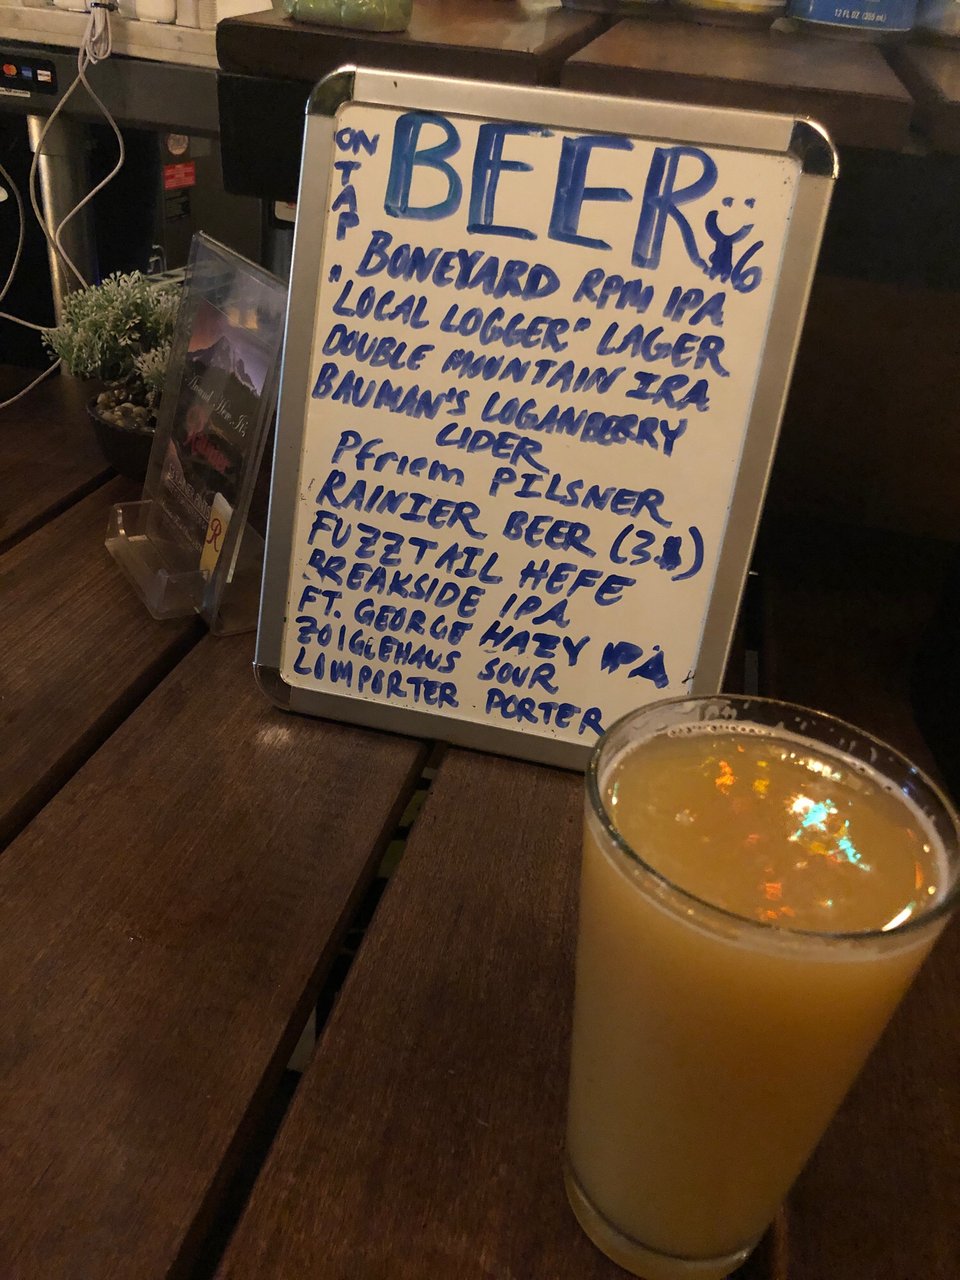 12 FL OZ (355 mL)
ON TAP
BEER
$6
BONEYARD RPM IPA
"LOCAL LOGGER" LAGER
DOUBLE MOUNTAIN IRA
BAUMAN'S LOGANBERRY
CIDER
Pfriem PILSNER
RAINIER BEER (3$)
FUZZTAIL HEFE
BREAKSIDE IPA
FT. GEORGE HAZY IPA
ZOIGLEHAUS SOUR
LOMPORTER PORTER
R